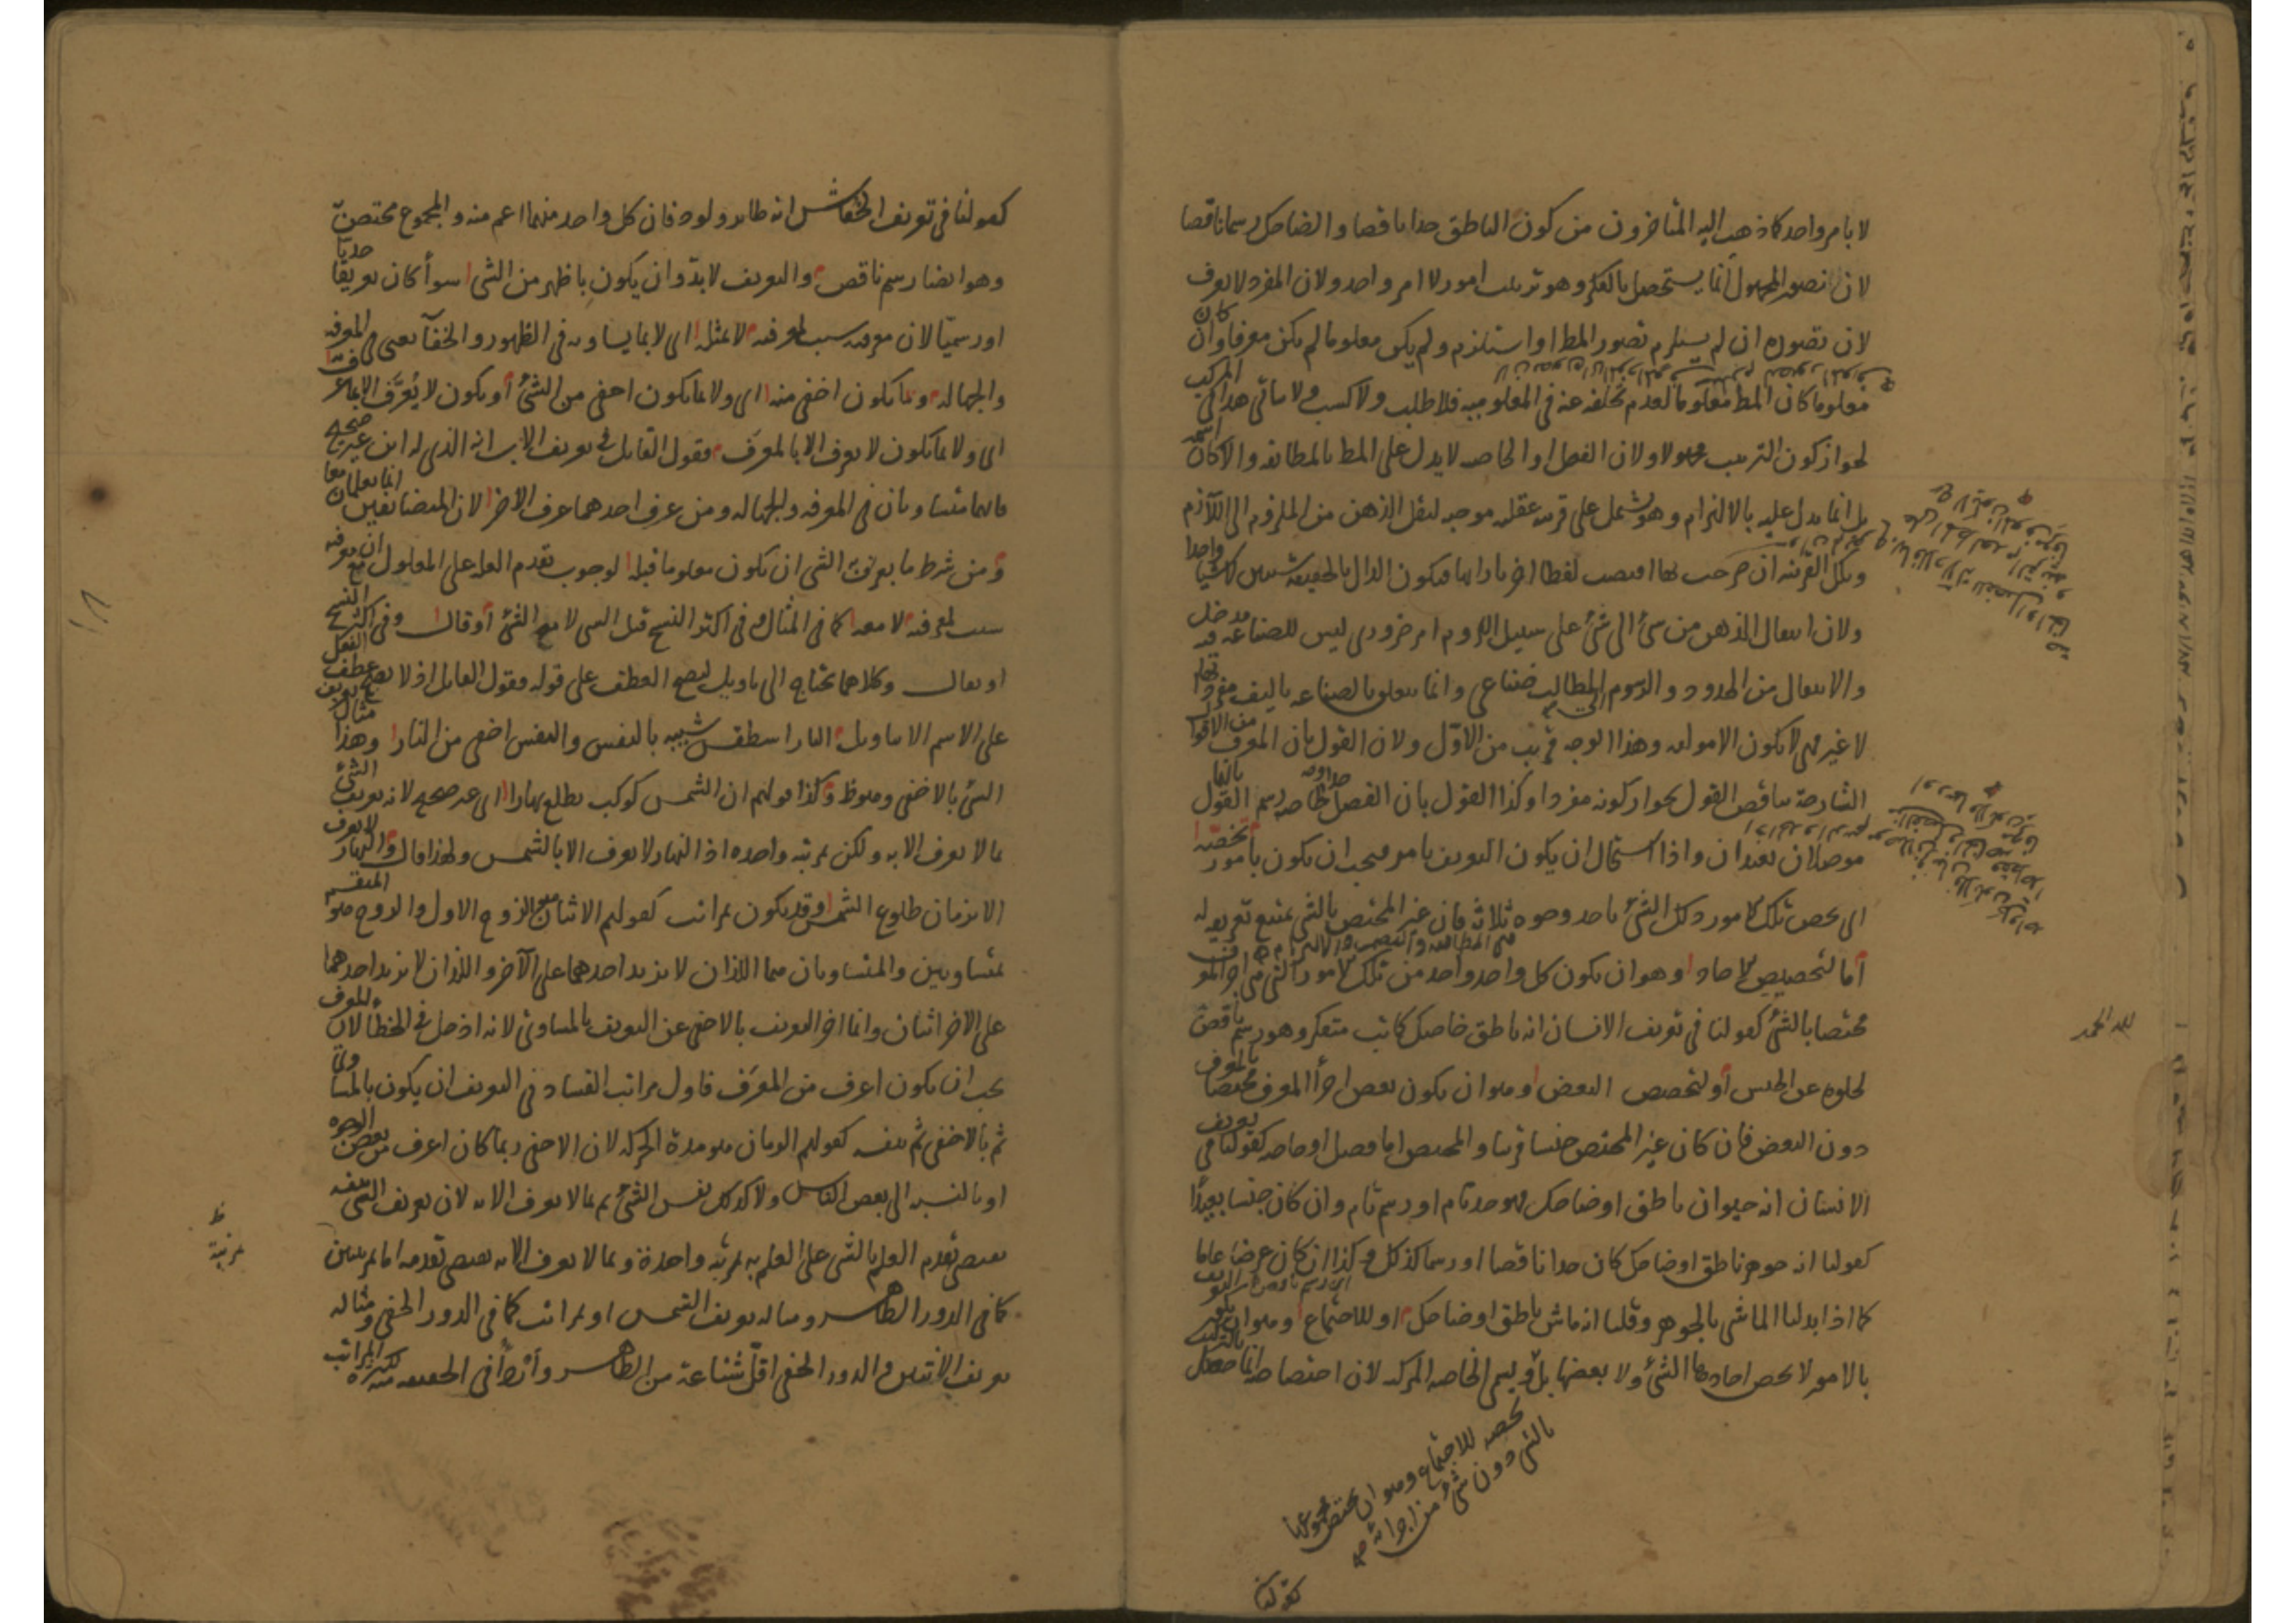 لا بامر واحد كما ذهب اليه المتأخرون من كون الناطق حدا ناقصا والضاحك رسما ناقصا
لان تصور المجهول انما يستحصل بالفكر وهو ترتيب امور لا امر واحد ولان المفرد لا يعرف
لان تصوره ان لم يستلزم تصور المط او استلزم ولم يكن معلوما لم يكن معرفا وان كان
معلوما كان المط معلوما لعدم تخلفه عنه في المعلومية فلا طلب ولا كسب ولا يتأتى هذا في المركب
لجواز كون الترتيب مجهولا ولان الفصل او الخاصه لا يدل على المط بالمطابقه والا كان اسمه
بل انما يدل عليه بالالتزام وهو يشتمل على قرينه عقليه موجبه لنقل الذهن من الملزوم الى اللازم
وتلك القرينه ان صرحت بها اقتضت لفظا اخر بازائها فيكون الدال بالحقيقه شيئين لا شيئا واحدا
ولان انتقال الذهن من شئ الى شئ على سبيل اللزوم امر ضروري ليس للصناعه فيه مدخل
والانتقال من الحدود والرسوم الى المطالب صناعي وانما يتعلق بالصناعه تأليف مفرداتها
لا غير فهي لا تكون الا مولفه وهذا الوجه قريب من الاول ولان القول بان المعرف من الاقوال
الشارحة يناقض القول بجواز كونه مفردا وكذا القول بان الفصل حد او الخاصه رسم يناقض القول
موصلان بعيدان واذا استحال ان يكون التعريف بامر فيجب ان يكون بامور تخصه
اى يخص تلك الامور ذلك الشئ باحد وجوه ثلاثة فان غير المختص بالشئ يمتنع تعريفه له
اما لتخصيص الاحاد وهو ان يكون كل واحد واحد من تلك الامور التي هي اجزا المعرف
مختصا بالشئ كقولنا في تعريف الانسان انه ناطق ضاحك كاتب متفكر وهو رسم ناقص
لخلوه عن الجنس او لتخصيص البعض وهو ان يكون بعض اجزأ المعرف مختصا بالمعرف
دون البعض فان كان غير المختص جنسا قريبا والمختص اما فصل او خاصه كقولنا في تعريف
الانسان انه حيوان ناطق او ضاحك فهو حد تام او رسم تام وان كان جنسا بعيدا
كقولنا انه جوهر ناطق او ضاحك كان حدا ناقصا او رسما كذلك وكذا ان كان عرضا عاما
كما اذا بدلنا الماشى بالجوهر وقلنا انه ماش ناطق او ضاحك او للاجتماع وهو ان يكون التعريف
بالامور لا يخص احادها الشئ ولا بعضها بل ويسمى الخاصه المركبه لان اختصاصه انما حصل بالتركيب
تخصه للاجتماع وهو ان يختص مجموعها
بالشئ دون شئ من اجزائه صح
كقولنا
لله الحمد
كقولنا في تعريف الخفاش انه طاير ولود فان كل واحد منهما اعم منه والمجموع مختص به
وهو ايضا رسم ناقص والتعريف لا بد وان يكون باظهر من الشئ سوأ كان تعريفا حديا
او رسميا لان معرفته سبب لمعرفته لا بمثله اى لا بما يساويه في الظهور والخفآ يعنى في المعرفه
والجهاله وبما يكون اخفى منه اى ولا بما يكون اخفى من الشئ او يكون لا يعرف الا بما عرف به
اى ولا بما يكون لا يعرف الا بالمعرف فقول القايل في تعريف الاب انه الذي له ابن غير صحيح
فانهما متساويان في المعرفه والجهاله ومن عرف احدهما عرف الاخر لان المتضايفين انما يعلمان معا
ومن شرط ما يعرف الشئ ان يكون معلوما قبله لوجوب تقدم العلة على المعلول مع ان معرفته
سبب لمعرفته لا معه كما في المثال وفي اكثر النسخ قبل الشى لا مع الشئ او قال وفي اكثر النسخ
او يقال وكلاهما يحتاج الى تاويل ليصح العطف على قوله فقول القايل اذ لا يصح عطف الفعل
على الاسم الا بتاويل النار اسطقس شبيه بالنفس والنفس اخفى من النار وهذا مثال تعريف
الشئ بالاخفى وهو ظ وكذا قولهم ان الشمس كوكب يطلع نهارا اى غير صحيح لانه تعريف الشئ
بما لا يعرف الا به ولكن بمرتبه واحده اذ النهار لا يعرف الا بالشمس ولهذا قال والنهار لا يعرف
الا بزمان طلوع الشمس وقد يكون بمراتب كقولهم الاثنان هو الزوج الاول والزوج هو المنقسم
بمتساويين والمتساويان هما اللذان لا يزيد احدهما على الآخر واللذان لا يزيد احدهما
على الاخر اثنان وانما اخر التعريف بالاخفى عن التعريف بالمساوي لانه ادخل في الخطأ لان المعرف
يجب ان يكون اعرف من المعرف فاول مراتب الفساد في التعريف ان يكون بالمساوي
ثم بالاخفى ثم بنفسه كقولهم الزمان هو مدة الحركه لان الاخفى ربما كان اعرف من بعض الوجوه
او بالنسبه الى بعض الناس ولا كذلك نفس الشئ ثم بما لا يعرف الا به لان تعريف الشئ بنفسه
يقتضى تقدم العلم بالشى على العلم به بمرتبه واحدة وبما لا يعرف الا به يقتضى تقدمه اما بمرتبتين
كما في الدور الظاهر ومثاله تعريف الشمس او بمراتب كما في الدور الخفى ومثاله
تعريف الاثنين والدور الخفى اقل شناعة من الظاهر وأردأ في الحقيقه منه لكثرة المراتب
ظ
مرتبة